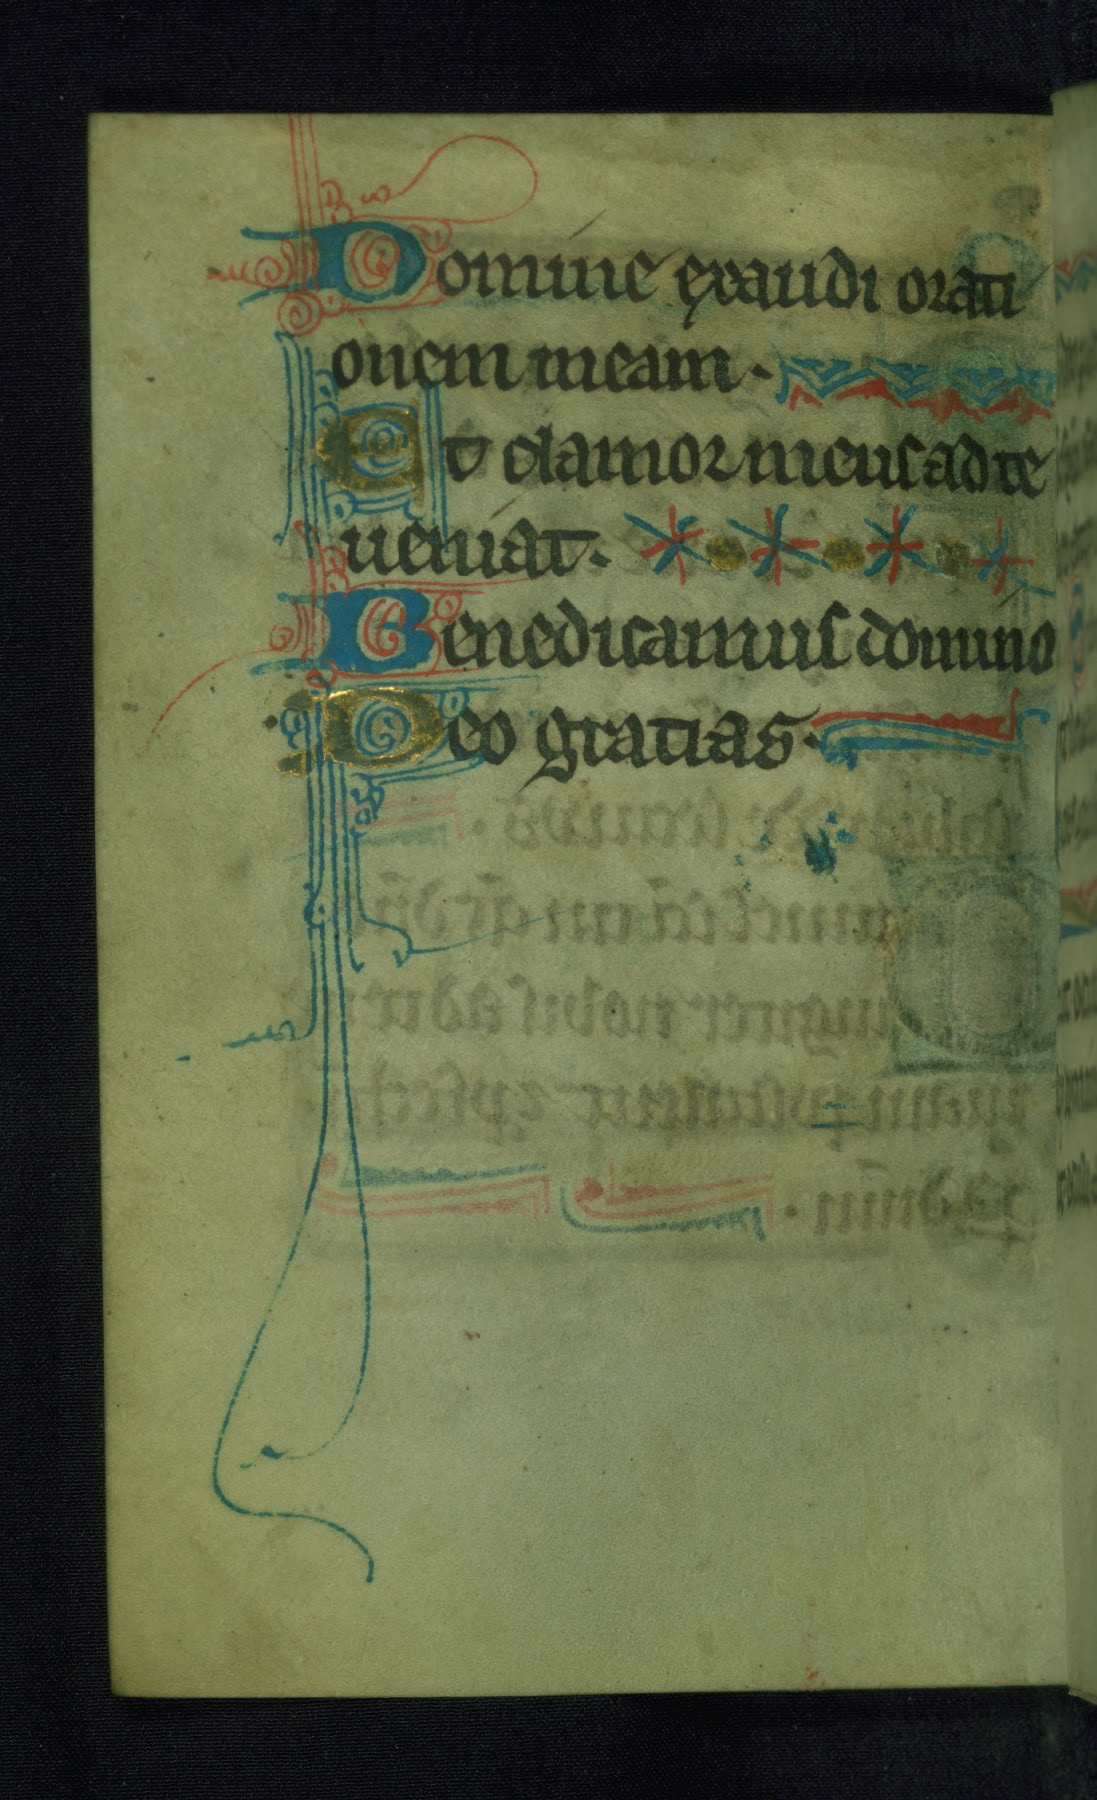 Domine exaudi orati
onem meam.
Et clamor meus ad te
ueniat.
Benedicamus domino
Deo gratias.